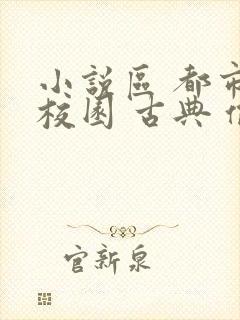 小說區 都市
校園 古典
官新泉